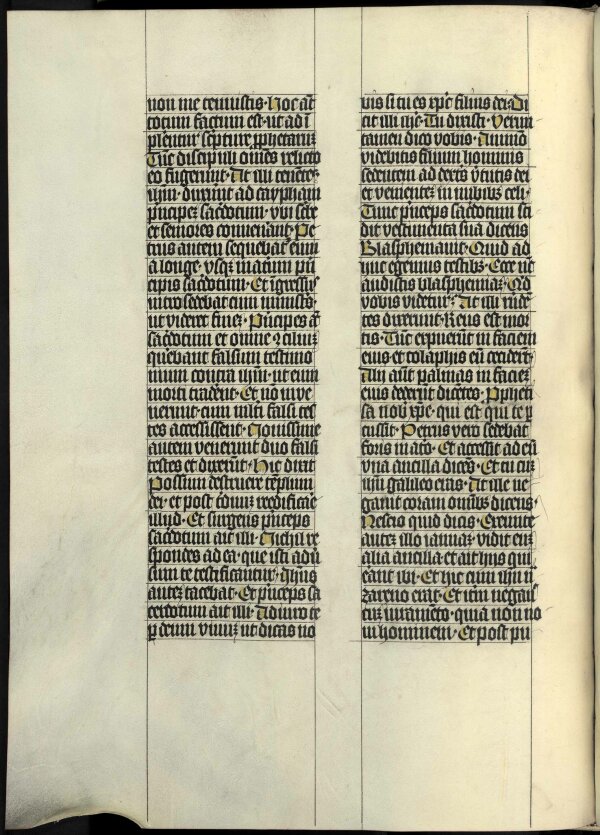 non me tenuistis. Hoc aūt
totum factum est. ut adī
plerentur scpture ꝓphetarū.
Tūc discipuli om̄es relicto
eo fugerunt. At illi tenētes
ihm̄. duxerūt ad caypham
pͥncipeꝫ sac̄dotum. vbi sc̄be
et seniores conuenant. Pe
trus autem sequebat̄ eum
a longe. vsqꝫ in atrium pͥn
cipis sac̄dotum. Et iḡressꝰ
intro sedebat cum ministͥs.
ut videret fineꝫ. Pͥncipes aūt
sac̄dotum et omne ꝯciliuꝫ
querebant falsum testimo
nium contra ihm̄. ut eum
morti traderēt. Et nō inue
nerunt. cum m̄lti falsi tes
tes accessissent. Nouissime
autem venerunt duo falsi
testes et dixerūt. Hic dixit
Possum destruere tēplum
dei. et post tͥduuꝫ reedificare
illud. Et surgens pͥnceps
sac̄dotum ait illi. Nichil re
spondes ad ea. que isti adūs
sum te testificantur. Ihūs
auteꝫ tacebat. Et pͥnceps sa
cerdotum ait illi. Adiuro te
ꝑ deum viuuꝫ ut dicas no
bis si tu es xp̄c filius dei. Di
cit illi ihc̄. Tu dixisti. Verum
tamen dico vobis. Ammo
videbitis filium hominis
sedentem ad dextrīs v̄tutis dei
et venienteꝫ in nubibꝫ celi.
Tunc pͥnceps sac̄dotum sci
dit vestimenta sua dicens
Blasphemauit. Quid ad
huc egemus testibꝫ. Ecce nūc
audistis blasphemiaꝫ. Qͥd
vobis videtur. At illi rn̄dē
tes dixerunt. Reus est mor
tis. Tūc expuerūt in faciem
eius. et colaphis eū cecider̄t.
Alij aūt palmas in facieꝫ
eius dederūt dicētes. Pͦpheti
sa nob̄ xp̄e. qui est qui te ꝑ
cussit. Petrus vero sedebat
foris in atͥo. Et accessit ad eū
vna ancilla dicēs. Et tu cuꝫ
ihū galileo eras. At ille ne
gauit coram om̄ibꝫ dicens.
Nescio quid dicis. Exeunte
auteꝫ illo ianuaꝫ. vidit euꝫ
alia ancilla et ait hijs qui
erant ibi. Et hic cum ihū n
zareno erat. Et itm̄ negauit
cuꝫ iuramēto. quia non no
ui hominem. Et post pu